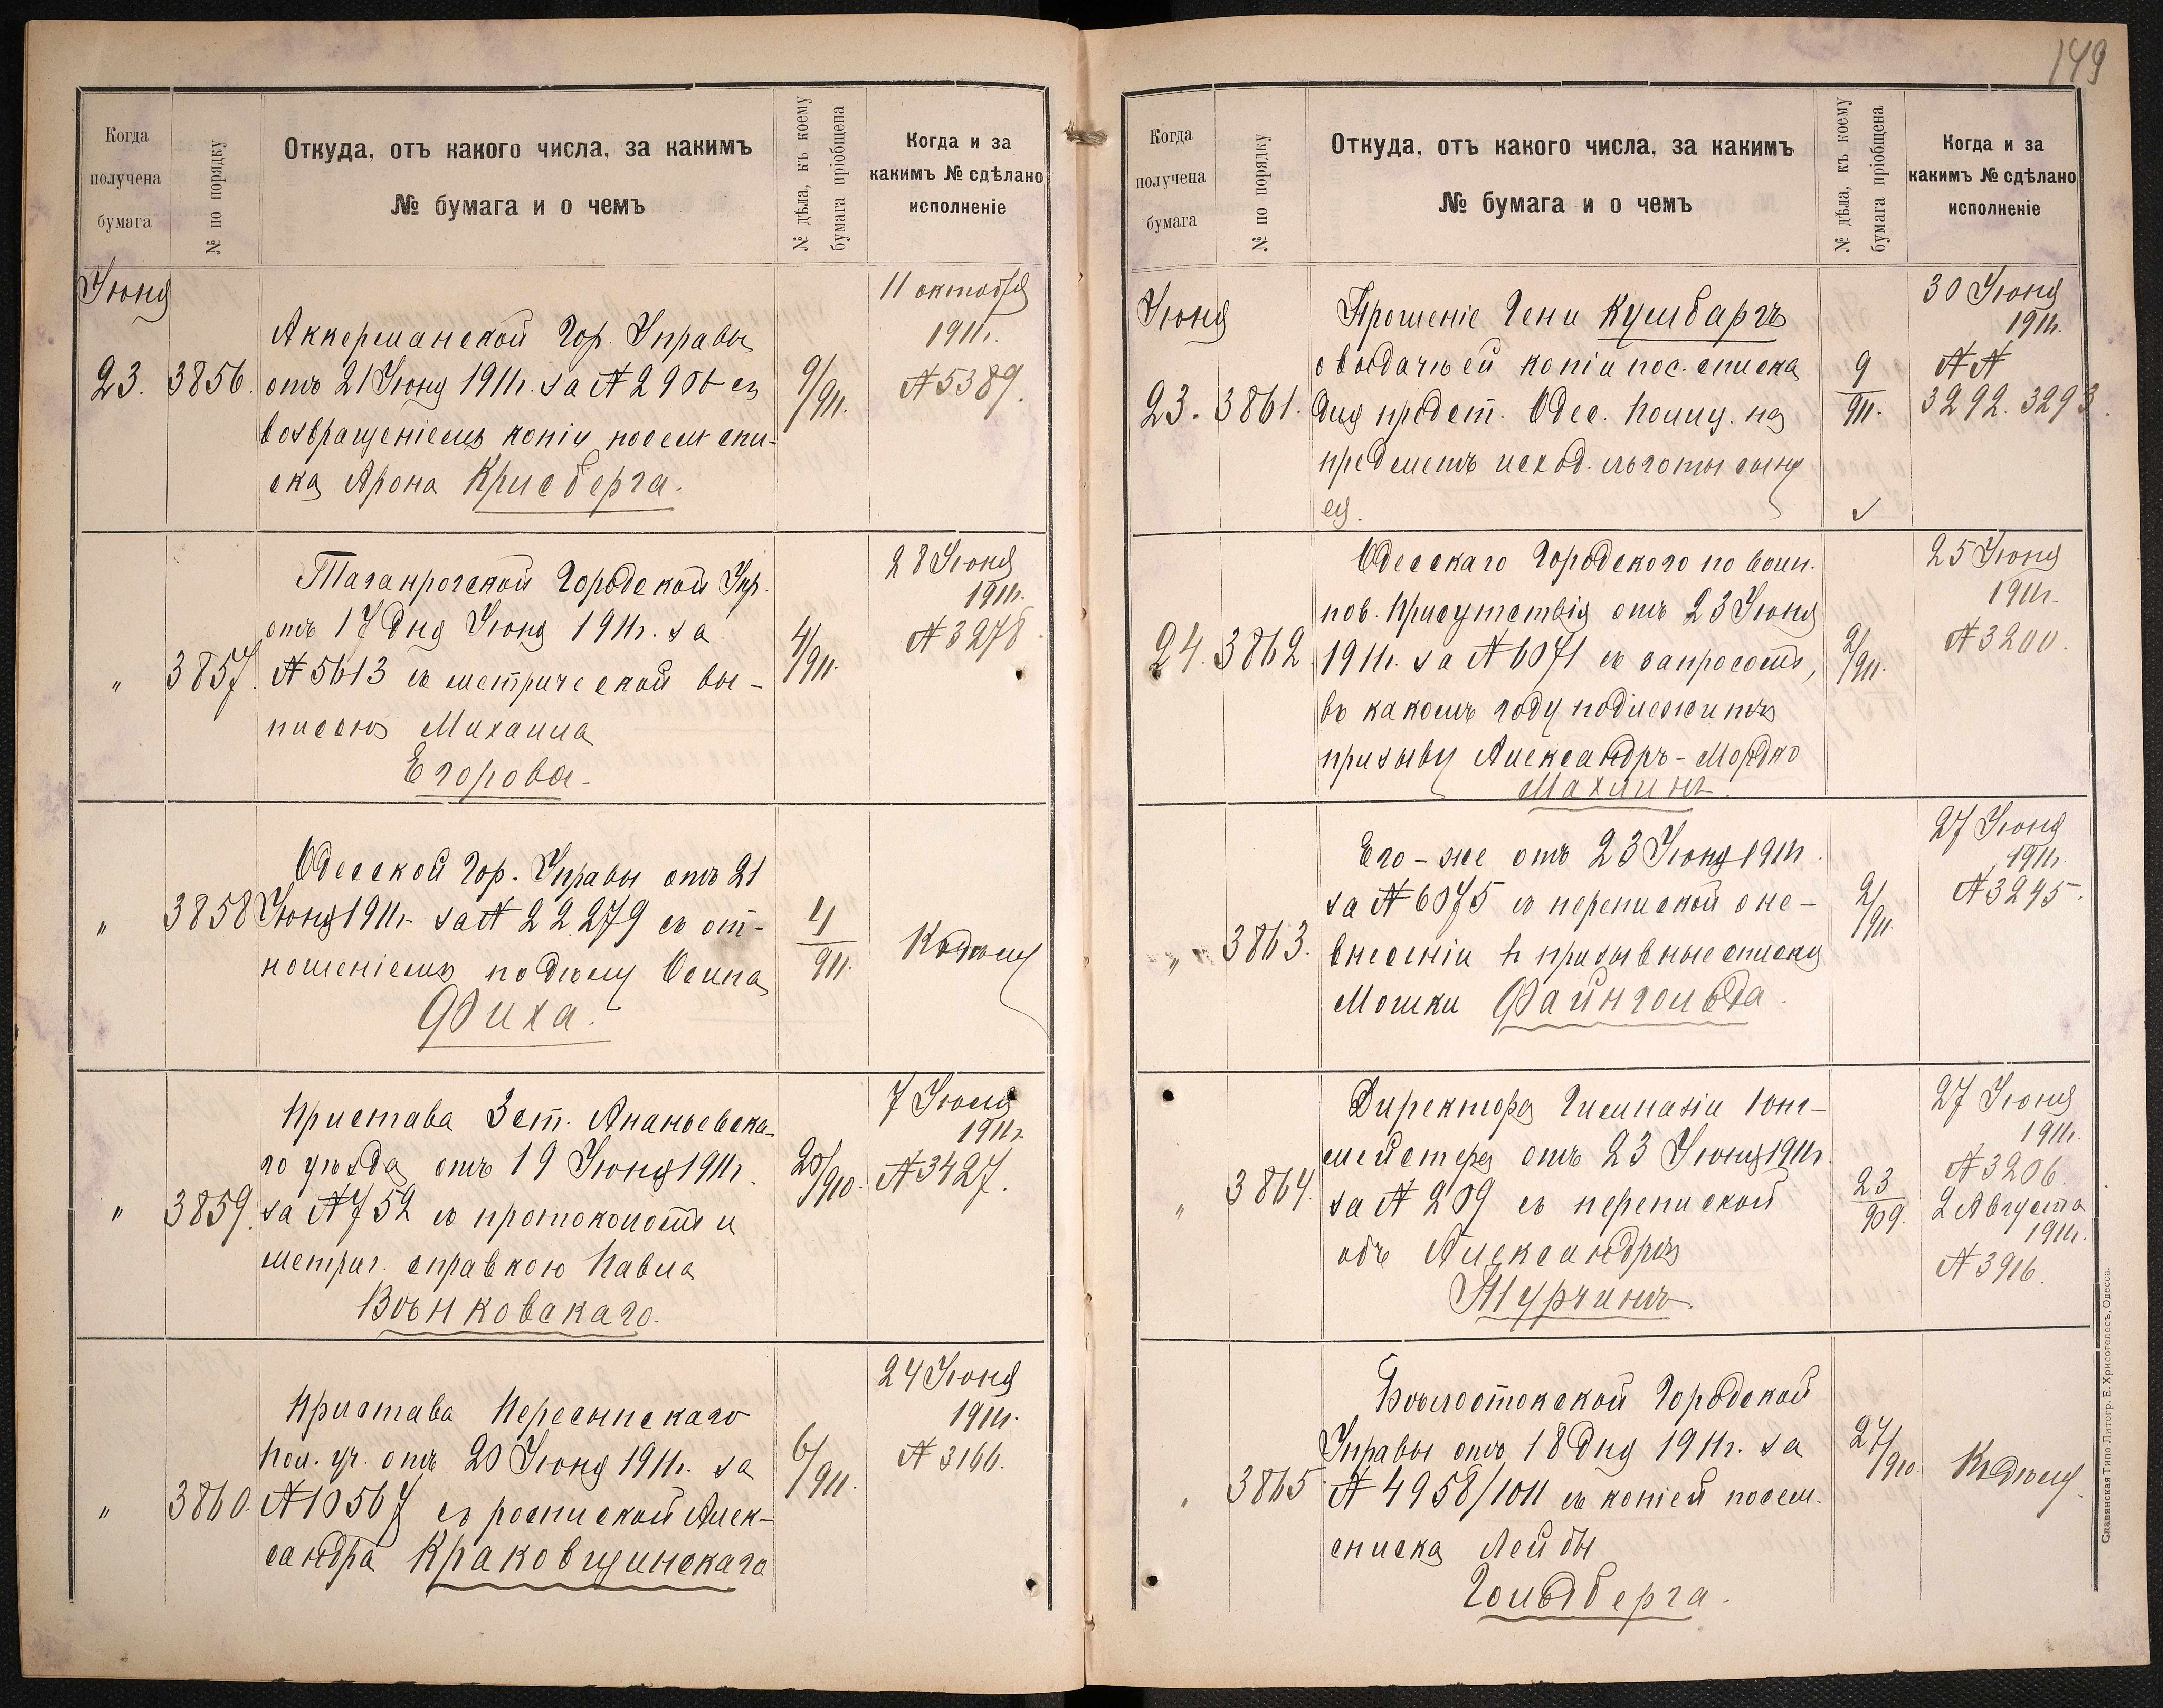 149
Когда
получена
бумага
№ по порядку
Откуда, отъ какого числа, за какимъ
№ бумага и о чемъ
№ дѣла, къ коему
бумага пріобщена
Когда и за
какимъ № сдѣлано
исполненіе
Іюня
23.
3856.
Аккерманской Гор. Управы
отъ 21 Іюня 1911г. за № 2906 съ
возвращеніемъ копіи посем. спи-
ска Арона Крисберга.
9/911.
11 октября
1911г.
№ 5389.
"
3857.
Таганрогской Городской Упр.
отъ 17 дня Іюня 1911г. за
№ 5613 съ метрической вы-
писью Михаила
Егорова.
4/911.
28 Іюня
1911г.
№ 3278.
"
3858
Одесской Гор. Управы отъ 21
Іюня 1911г. за № 22279 съ от-
ношеніемъ по дѣлу Осипа
Фиха.
4/911.
Къ дѣлу
"
3859.
Пристава 3 ст. Ананьевска-
го уѣзда отъ 19 Іюня 1911г.
за № 752 съ протоколомъ и
метрич. справкою Павла
Воьнковскаго.
20/910.
7 Іюля
1911г.
№ 3427.
"
3860.
Пристава Пересыпскаго
Пол. уч. отъ 20 Іюня 1911г. за
№ 10567 съ роспиской Алек-
сандра Краковщинскаго
6/911.
24 Іюня
1911г.
№ 3166.
Когда
получена
бумага
№ по порядку
Откуда, отъ какого числа, за какимъ
№ бумага и о чемъ
№ дѣла, къ коему
бумага пріобщена
Когда и за
какимъ № сдѣлано
исполненіе
Іюня
23.
3861.
Прошеніе Гени Кумбаргъ
о выдачѣ ей копіи пос. списка
для предст. Одес. Полиц. на
предметъ исход. льготы сыну
ея.
9/911.
✓
30 Іюня
1911г.
№ №
3292. 3293.
24.
3862.
Одесскаго Городского по воин.
пов. Присутствія отъ 23 Іюня
1911г. за № 6071 съ запросомъ,
въ какомъ году подлежитъ
призыву Александръ-Мордко
Махлинъ.
2/911.
25 Іюня
1911г.
№ 3200.
"
3863.
Его-же отъ 23 Іюня 1911г.
за № 6075 съ перепиской о не-
внесеніи въ призывные списки
Мошки Файнгольда.
2/911.
27 Іюня
1911г.
№ 3245.
"
3864.
Директора Гимназіи Юнг-
мейстера отъ 23 Іюня 1911г.
за № 209 съ перепиской
объ Александрѣ
Турчинъ.
23/909.
27 Іюня
1911г.
№ 3206.
2 Августа
1911г.
№ 3916.
"
3865
Бѣлостокской Городской
Управы отъ 18 дня 1911г. за
№ 4958/1011 съ копіей посем.
списка Лейбы
Гольдберга.
27/910.
Къ дѣлу.
Славянская Типо-Литогр. Е. Хрисогелосъ, Одесса.